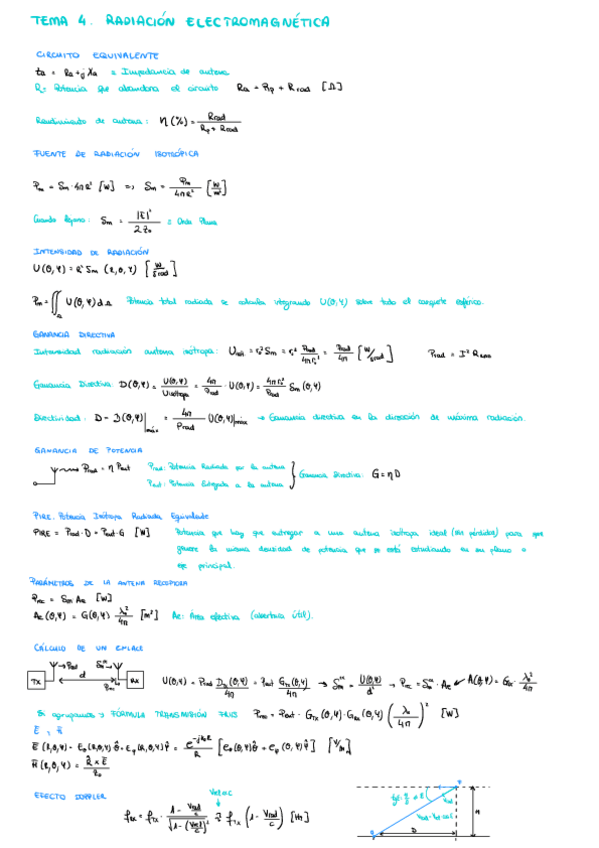 TEMA 4. RADIACIÓN ELECTROMAGNÉTICA
CIRCUITO EQUIVALENTE
Za = Ra + j Xa = Impedancia de antena
R = Potencia que abandona el circuito Ra = Rp + Rrad [Ω]
Rendimiento de antena: η (%) = Rrad / (Rp + Rrad)
FUENTE DE RADIACIÓN ISOTRÓPICA
Pm = Sm · 4πR² [W] => Sm = Pm / 4πR² [W/m²]
Cuando lejano: Sm = |E|² / 2Z₀ = Onda Plana
INTENSIDAD DE RADIACIÓN
U(θ,φ) = R² Sm (r,θ,φ) [W/srad]
Pm = ∬ U(θ,φ) dΩ Potencia total radiada se calcula integrando U(θ,φ) sobre todo el casquete esférico.
GANANCIA DIRECTIVA
Intensidad radiación antena isótropa: Uiso = r₀² Sm = r₀² Prad / 4πr₀² = Prad / 4π [W/srad] Prad = I² Rrad
Ganancia Directiva: D(θ,φ) = U(θ,φ) / Uisotropa = 4π / Prad · U(θ,φ) = 4πr₀² / Prad Sm (θ,φ)
Directividad: D = D(θ,φ)|máx = 4π / Prad U(θ,φ)|máx → Ganancia directiva en la dirección de máxima radiación.
GANANCIA DE POTENCIA
Prad = η Pent
Prad: Potencia Radiada por la antena
Pent: Potencia Entregada a la antena
Ganancia Directiva: G = ηD
PIRE. Potencia Isótropa Radiada Equivalente
PIRE = Prad · D = Pent · G [W] Potencia que hay que entregar a una antena isótropa ideal (sin pérdidas) para que
genere la misma densidad de potencia que se está estudiando en su plano o
eje principal.
PARÁMETROS DE LA ANTENA RECEPTORA
Prec = Sm Ae [W]
Ae (θ,φ) = G(θ,φ) λ₀² / 4π [m²] Ae: Área efectiva (abertura útil).
CÁLCULO DE UN ENLACE
TX d RX
U(θ,φ) = Prad DTx(θ,φ) / 4π = Pent GTx(θ,φ) / 4π → Sm = U(θ,φ) / d² → Prec = Sm · Ae A(θ,φ) = GRx · λ² / 4π
Si agrupamos → FÓRMULA TRANSMISIÓN FRIIS Prec = Pent · GTx (θ,φ) · GRx (θ,φ) (λ₀ / 4π)² [W]
E, H
E (R,θ,φ) = Eθ (R,θ,φ) θ̂ + Eφ (R,θ,φ) φ̂ = e^(-jk₀R) / R [eθ(θ,φ) θ̂ + eφ (θ,φ) φ̂] [V/m]
H (R,θ,φ) = R̂ × E / Z₀
EFECTO DOPPLER
Vrel≪C
fRx = fTx · (1 - Vrad/c) / √(1 - (Vrel/c)²) ≈ fTx (1 - Vrad/c) [Hz]
D
H